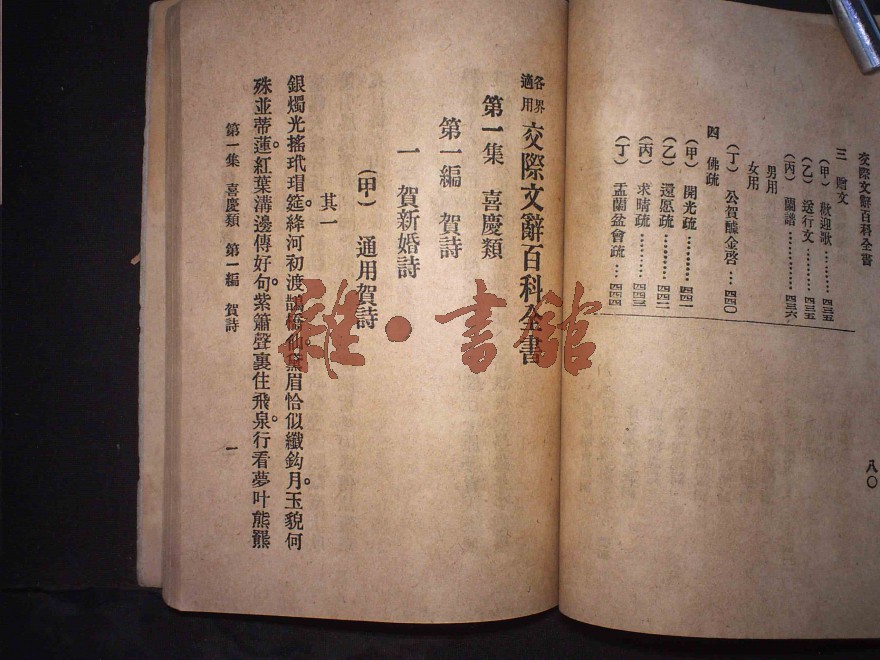 交際文辭百科全書 八〇
三 贈文
(甲) 歡迎歌…………四三五
(乙) 送行文………四三五
(丙) 蘭譜…………四三六
男用
女用
(丁) 公賀醵金啓…四四〇
四 佛疏
(甲) 開光疏………四四一
(乙) 還愿疏………四四二
(丙) 求晴疏………四四三
(丁) 盂蘭盆會疏…四四四
各界適用 交際文辭百科全書
第一集 喜慶類
第一編 賀詩
一 賀新婚詩
(甲) 通用賀詩
其一
銀燭光搖玳瑁筵。絳河初渡鵲橋仙。黛眉恰似纖鈎月。玉貌何
殊並蒂蓮。紅葉溝邊傳好句。紫簫聲裏住飛泉。行看夢叶熊羆
第一集 喜慶類 第一編 賀詩 一
雜·書館